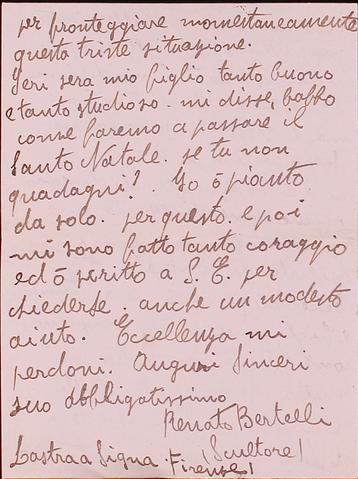 per fronteggiare momentaneamente
questa triste situazione.
Ieri sera mio figlio tanto buono
e tanto studioso. mi disse, babbo
come faremo a passare il
Santo Natale. se tu non
guadagni? Io ò pianto
da solo. per questo. e poi
mi sono fatto tanto coraggio
ed ò scritto a S. E. per
chiederle. anche un modesto
aiuto. Eccellenza mi
perdoni. Auguri Sinceri
suo obbligatissimo
Renato Bertelli
(Scultore)
Lastra a Signa. Firenze)